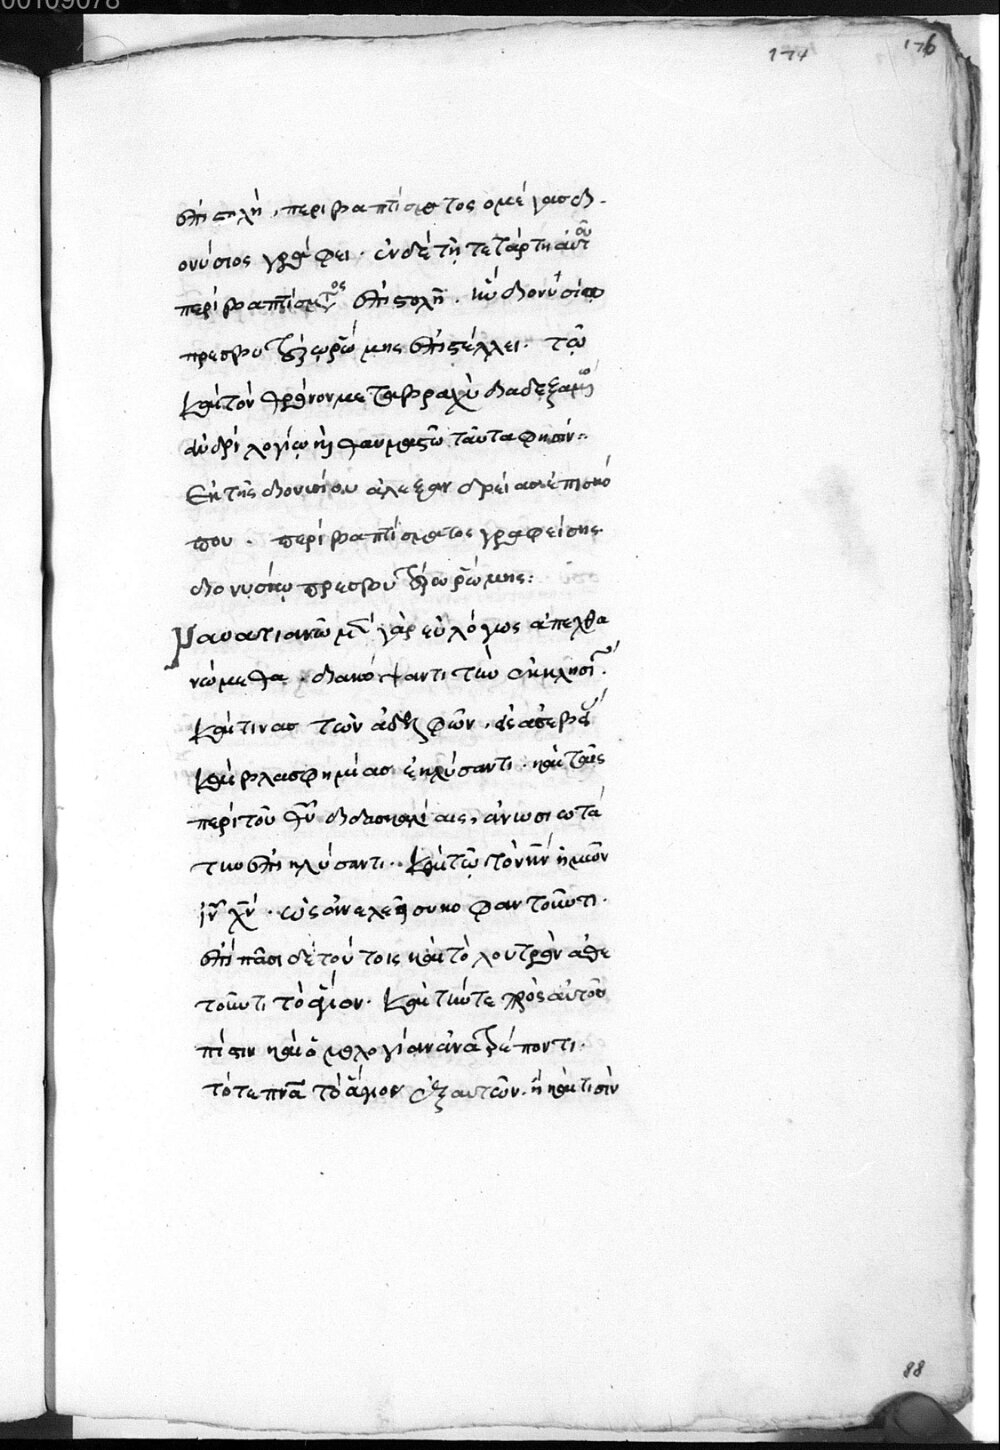 00109078
174 176
ἐπιστολὴ, περὶ βαπτίσματος ὁ μέγας δι-
ονύσιος γράφει. ἐν δὲ τῇ τετάρτῃ αὐτοῦ
περὶ βαπτίσματος ἐπιστολῇ. κὺ διονυσίῳ
πρεσβυτέρῳ ῥώμης ἐπιστέλλει. τῷ
καὶ τὸν θρόνον μετὰ βραχὺ διαδεξαμένῳ
ἀνδρὶ λογίῳ καὶ θαυμαστῷ ταῦτα φησίν:
Ἐκ τῆς διονυσίου ἀλεξανδρείας ἐπισκό
που. περὶ βαπτίσματος γραφείσης
διονυσίῳ πρεσβυτέρῳ ῥώμης:
Ναυατιανῷ μὲν γὰρ εὐλόγως ἀπεχθα
νώμεθα. διακόψαντι τὴν ἐκκλησίαν.
καὶ τινας τῶν ἀδελφῶν, εἰς ἀσεβείας
καὶ βλασφημίας ἑλκύσαντι. καὶ ταῖς
περὶ τοῦ θῦ διδασκαλίαις, ἀνιωσιωτά
την ἐπικλύσαντι. καὶ τῷ τὸν κν ἡμῶν
ιν χν. ὡς ἀνελεῆ συκοφαντοῦντι.
ἐπὶ πᾶσι δὲ τούτοις καὶ τὸ λουτρὸν ἀθε
τοῦντι τὸ ἅγιον. καὶ τήν τε πρὸς αὐτοῦ
πίστιν καὶ ὁμολογίαν ἀνατρέποντι.
τό τε πνα τὸ ἅγιον ἐξ αὐτῶν. ἢ καὶ τισὶν
88